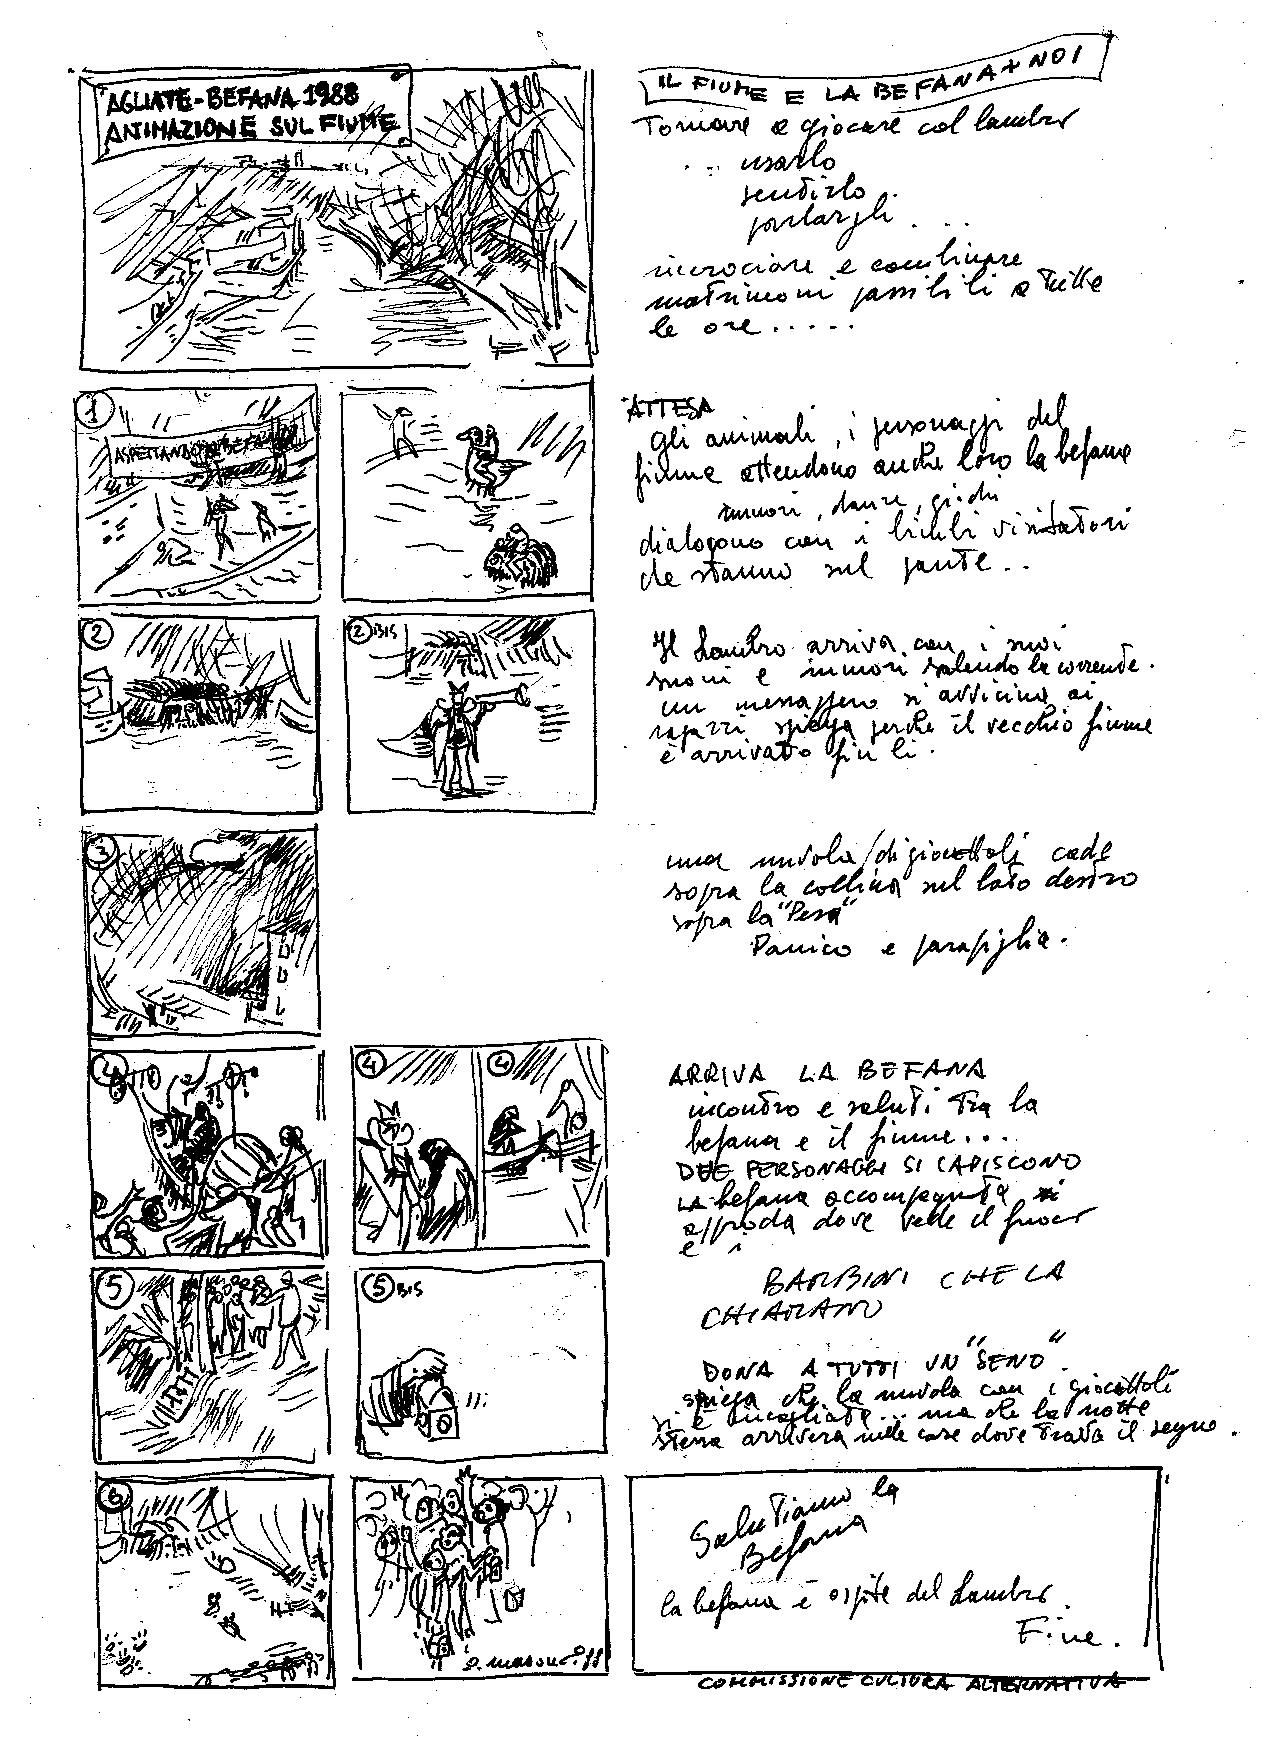 AGLIATE-BEFANA 1988
ANIMAZIONE SUL FIUME
IL FIUME E LA BEFANA + NOI
Tornare a giocare col lambro
... usarlo
sentirlo.
parlargli ...
incrociare e combinare
matrimoni possibili a tutte
le ore.....
1
ASPETTANDO LA BEFANA
ATTESA
gli animali, i personaggi del
fiume attendono anche loro la befana
rumori, danze, giochi
dialogano con i bimbi visitatori
che stanno sul ponte...
2
2 BIS
Il Lambro arriva con i suoi
suoni e rumori salendo la corrente.
un messaggero si avvicina ai
ragazzi spiega perche il vecchio fiume
è arrivato fin lì.
3
una nuvola/di giocattoli cade
sopra la collina sul lato destro
sopra la "Pesa"
Panico e parapiglia.
4
4
4
ARRIVA LA BEFANA
incontro e saluti tra la
befana e il fiume...
DUE PERSONAGGI SI CAPISCONO
LA befana accompagnata
approda dove vede il fuoco
e i
BAMBINI CHE LA
CHIAMANO
5
5 BIS
DONA A TUTTI UN "SENO".
spiega che la nuvola con i giocattoli
si è incagliata... ma che la notte
stessa arriverà nelle case dove trova il segno.
6
Salutiamo la
Befana
la befana è ospite del Lambro.
Fine.
COMMISSIONE CULTURA ALTERNATIVA